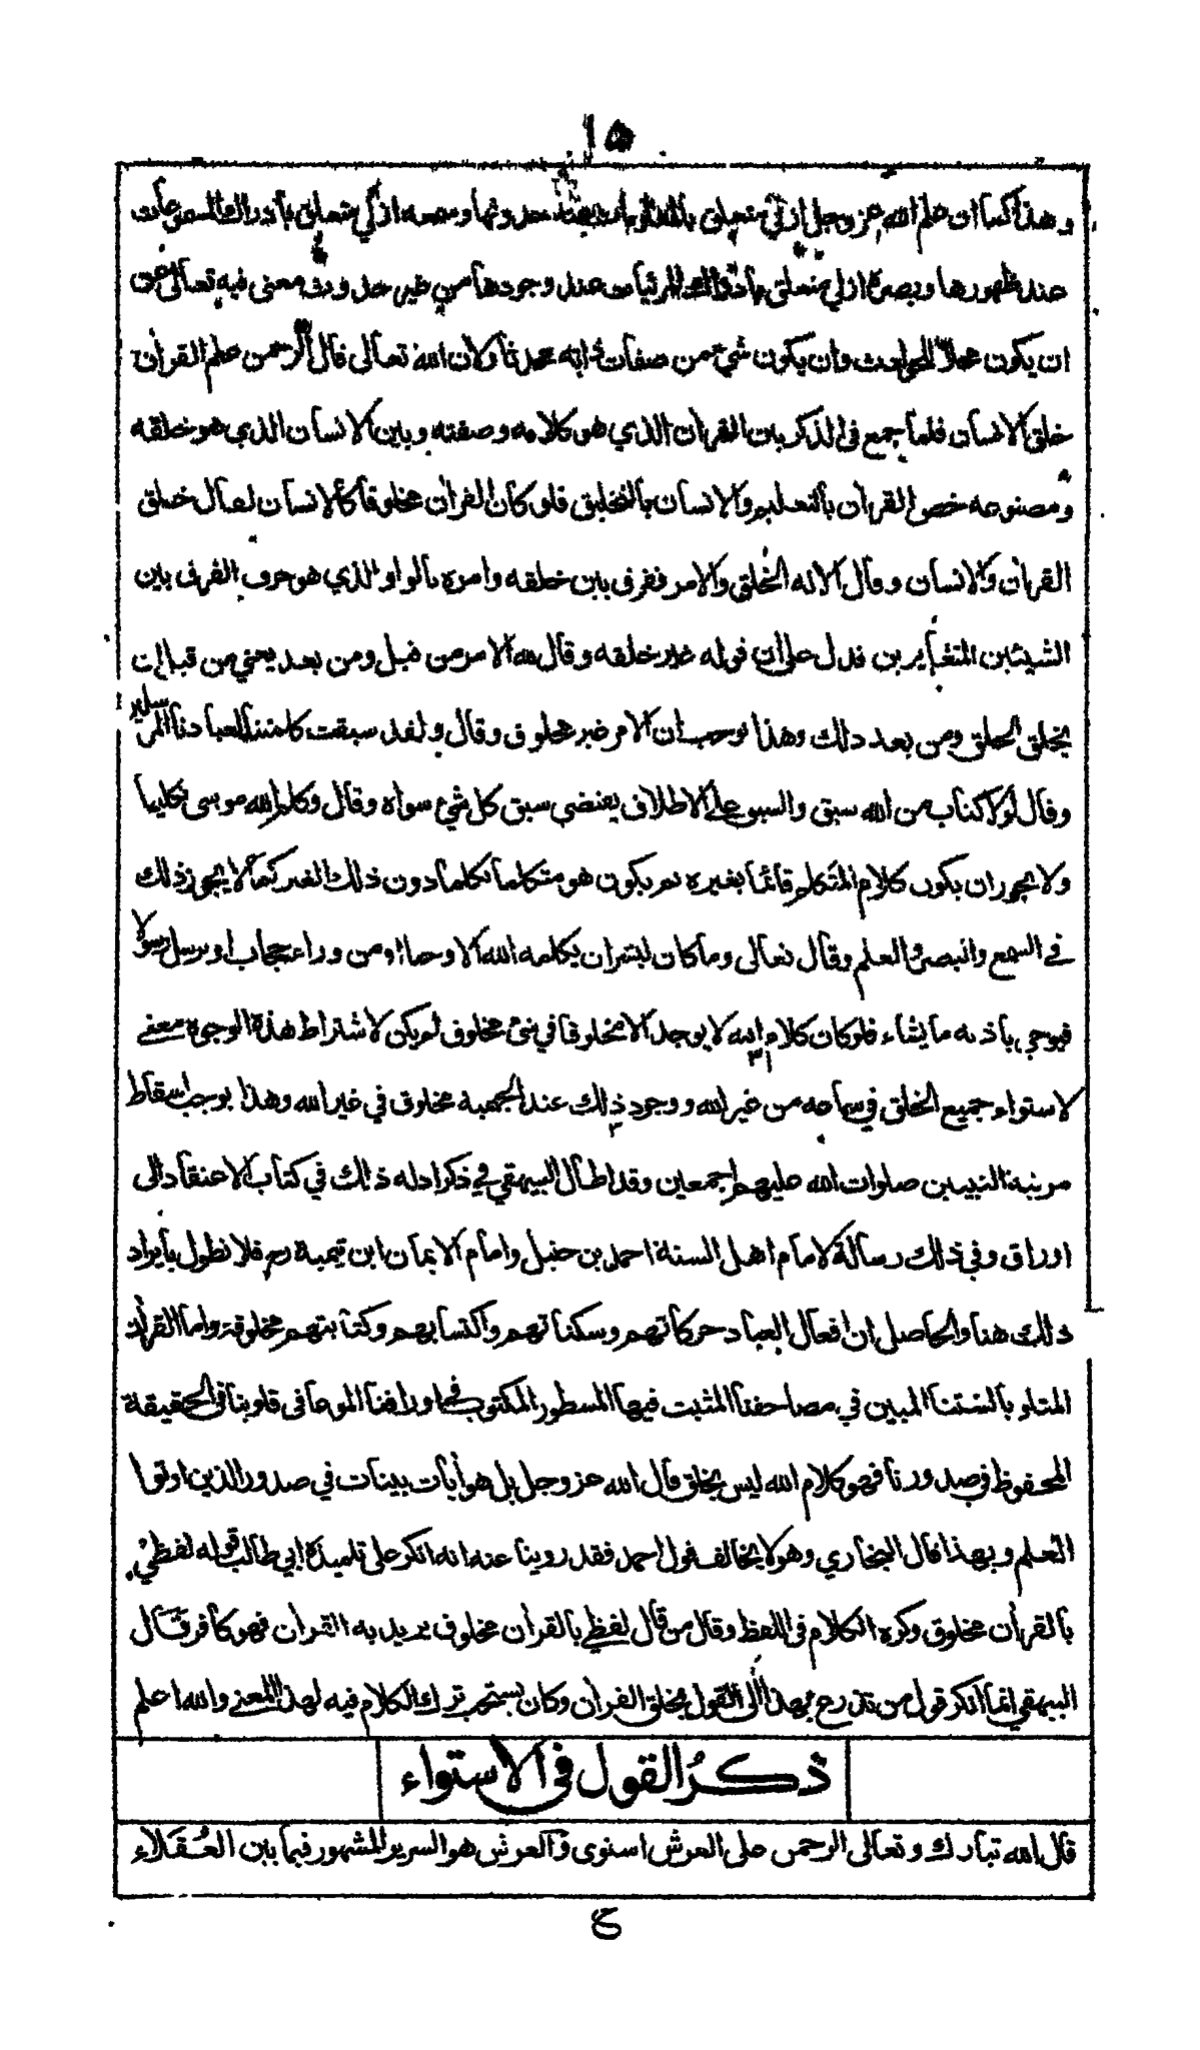 ١٥
وهذا كما ان علم الله عز وجل ازلي متعلق بالمعلومات عند حدوثها وسمعه ازلي متعلق بادراك المسموعات
عند ظهورها وبصره ازلي متعلق بادراك المرئيات عند وجودها من غير حدوث معنى فيه تعالى عن
ان يكون محلا للحوادث وان يكون شيئ من صفات ذاته محدثا ولان الله تعالى قال الرحمن علم القرأن
خلق الانسان فلما جمع في الذكر بين القرأن الذي هو كلامه وصفته وبين الانسان الذي هو خلقه
ومصنوعه خص القرأن بالتعليم والانسان بالتخليق فلو كان القرأن مخلوقا كالانسان لقال خلق
القرأن والانسان وقال الا له الخلق والامر ففرق بين خلقه وامره بالواو الذي هو حرف الفرق بين
الشيئين المتغايرين فدل على ان قوله غير خلقه وقال لله الامر من قبل ومن بعد يعني من قبل ان
يخلق الخلق ومن بعد ذلك وهذا يوجب ان الامر غير مخلوق وقال ولقد سبقت كلمتنا لعبادنا المرسلين
وقال لولا كتاب من الله سبق والسبق على الاطلاق يقتضي سبق كل شيء سواه وقال وكلم الله موسى تكليما
ولا يجوز ان يكون كلام المتكلم قائما بغيره ثم يكون هو متكلما تكلما دون ذلك الغير كما لا يجوز ذلك
في السمع والبصر والعلم وقال تعالى وما كان لبشر ان يكلمه الله الا وحيا او من وراء حجاب او يرسل رسولا
فيوحي باذنه ما يشاء فلو كان كلام الله لا يوجد الا مخلوقا في شئ مخلوق لم يكن لاشتراط هذه الوجوه معنى
لاستواء جميع الخلق في سماعه من غير الله ووجود ذلك عند الجهمية مخلوق في غير الله وهذا يوجب اسقاط
مرتبة النبيين صلوات الله عليهم اجمعين وقد اطال البيهقي في ذكر ادلة ذلك في كتاب الاعتقاد الى
اوراق وفي ذلك رسالة لامام اهل السنة احمد بن حنبل وامام الايمان ابن تيمية رح فلا نطول بايراد
ذلك هنا والحاصل ان افعال العباد حركاتهم وسكناتهم واكتسابهم وكتابتهم مخلوقة واما القرأن
المتلو بالسنتنا المبين في مصاحفنا المثبت فيها المسطور المكتوب في اوراقنا الموعا في قلوبنا في الحقيقة
المحفوظ في صدورنا فهو كلام الله ليس بخلق قال الله عز وجل بل هو أيات بينات في صدور الذين اوتوا
العلم وبهذا قال البخاري وهو لا يخالف قول احمد فقد روينا عنه انه انكر على تلميذه ابي طالب قوله لفظي
بالقرأن مخلوق وكره الكلام في اللفظ وقال من قال لفظي بالقرأن مخلوق يريد به القرأن فهو كافر قال
البيهقي انما انكر قول من تذرع بهذا الى القول بخلق القرأن وكان يستحب ترك الكلام فيه لهذا المعنى والله اعلم
ذكر القول في الاستواء
قال الله تبارك وتعالى الرحمن على العرش استوى فالعرش هو السرير المشهور فيما بين العقلاء